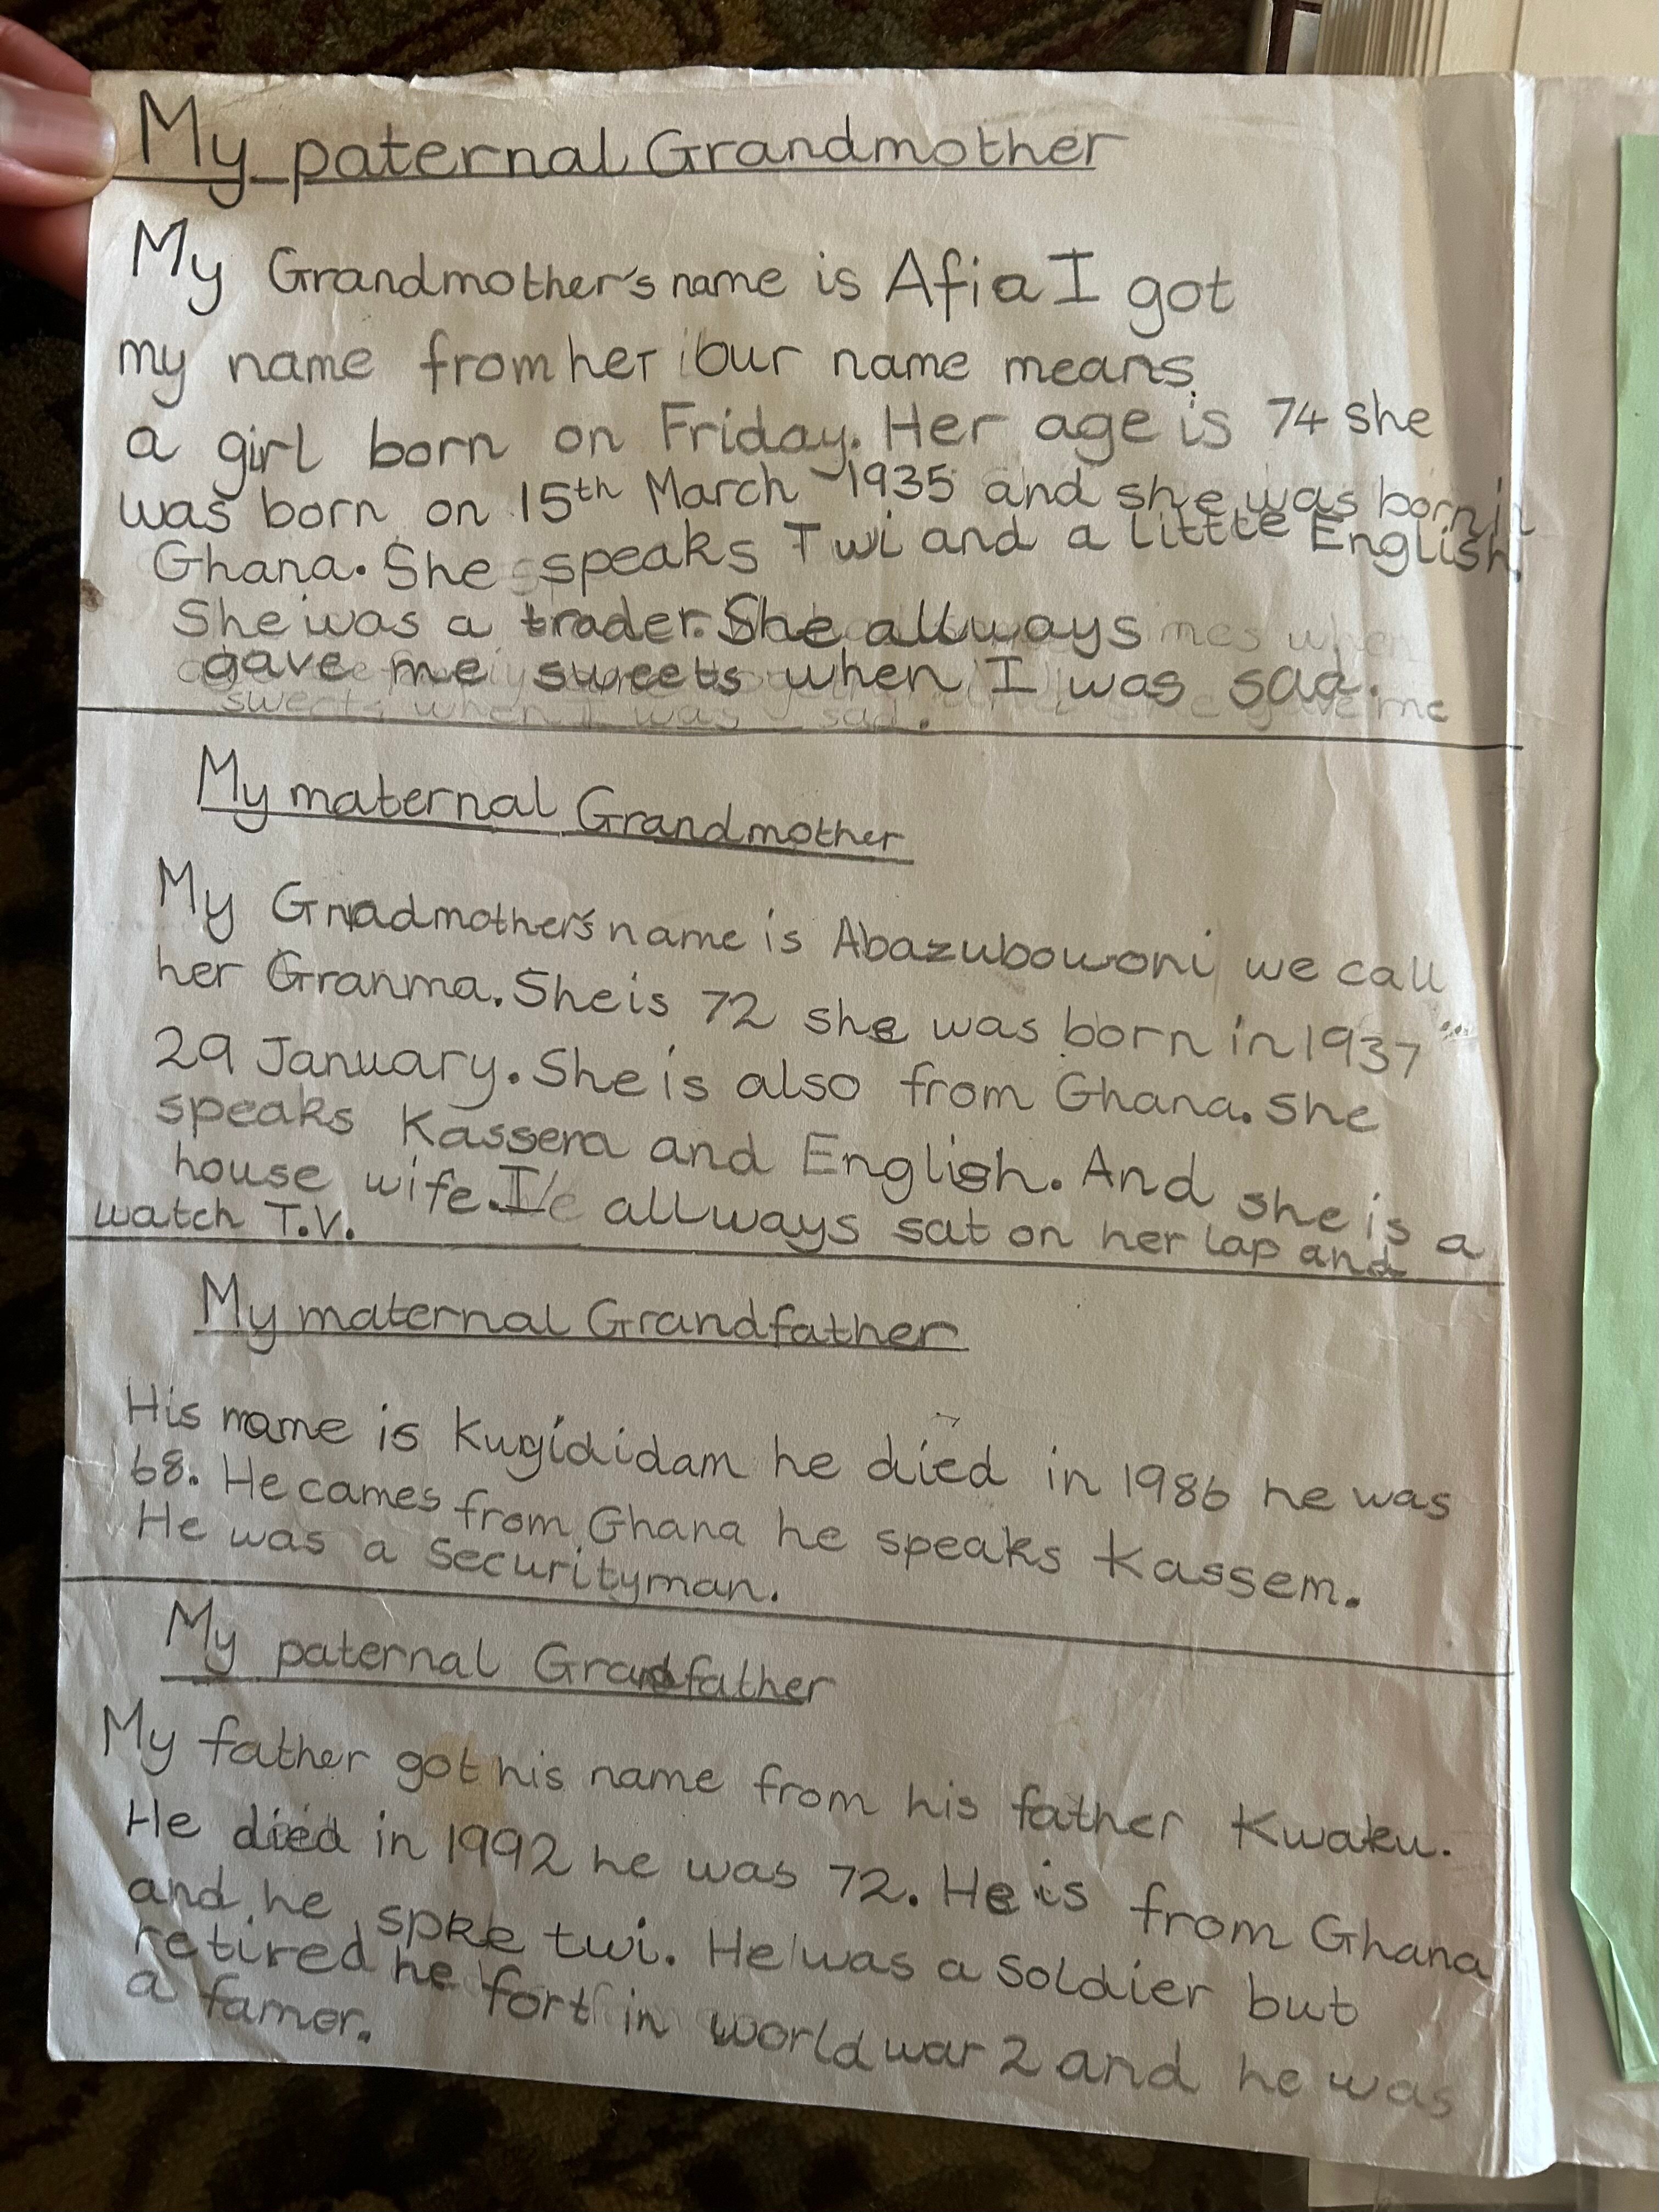 My paternal Grandmother
My Grandmother's name is Afia I got
my name from her our name means
a girl born on Friday. Her age is 74 she
was born on 15th March 1935 and she was born in
Ghana. She speaks Twi and a little English.
She was a trader. She allways
gave me sweets when I was sad.
sweets when I was sad.
My maternal Grandmother
My Gradmother's name is Abazubowoni we call
her Granma. She is 72 she was born in 1937
29 January. She is also from Ghana. She
speaks Kassem and English. And she is a
house wife. I allways sat on her lap and
watch T.V.
My maternal Grandfather
His name is Kugididam he died in 1986 he was
68. He cames from Ghana he speaks Kassem.
He was a securityman.
My paternal Grandfather
My father got his name from his father Kwaku.
He died in 1992 he was 72. He is from Ghana
and he spke twi. He was a soldier but
retired he fort in world war 2 and he was
a famer.